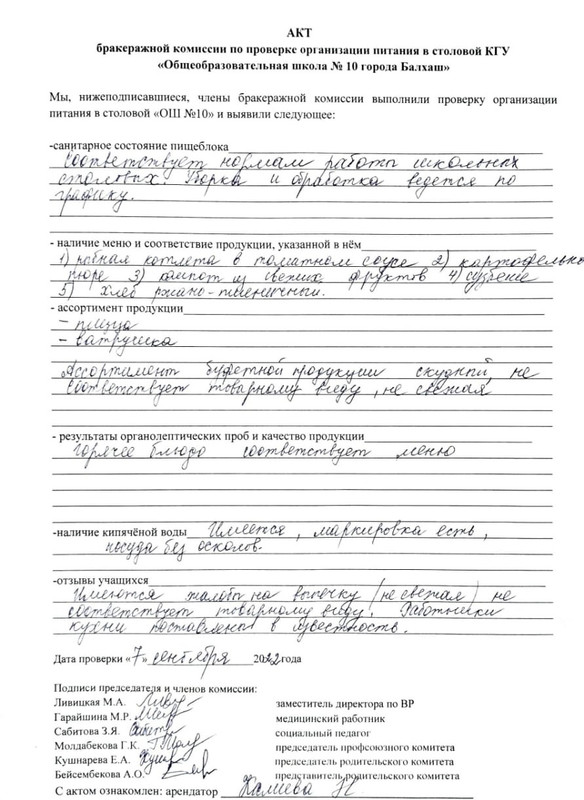 АКТ
бракеражной комиссии по проверке организации питания в столовой КГУ
«Общеобразовательная школа № 10 города Балхаш»
Мы, нижеподписавшиеся, члены бракеражной комиссии выполнили проверку организации
питания в столовой «ОШ №10» и выявили следующее:
-санитарное состояние пищеблока
Соответствует нормам работы школьных
столовых. Уборка и обработка ведется по
графику.
- наличие меню и соответствие продукции, указанной в нём
1) рыбная котлета в томатном соусе 2) картофельно
пюре 3) компот из свежих фруктов 4)
5) хлеб ржано-пшеничный.
- ассортимент продукции
- пицца
- ватрушка
Ассортимент буфетной продукции скудный, не
соответствует товарному виду, не свежая
- результаты органолептических проб и качество продукции
Горячее блюдо соответствует меню
-наличие кипячёной воды Имеется, маркировка есть,
посуда без осколов.
-отзывы учащихся
Имеются жалобы на выпечку (не свежая) не
соответствует товарному виду. Работники
кухни поставлены в известность.
Дата проверки «7» сентября 2022года
Подписи председателя и членов комиссии:
Ливицкая М.А. заместитель директора по ВР
Гарайшина М.Р. медицинский работник
Сабитова З.Я. социальный педагог
Молдабекова Г.К. председатель профсоюзного комитета
Кушнарева Е.А. председатель родительского комитета
Бейсембекова А.О. представитель родительского комитета
С актом ознакомлен: арендатор Калиева